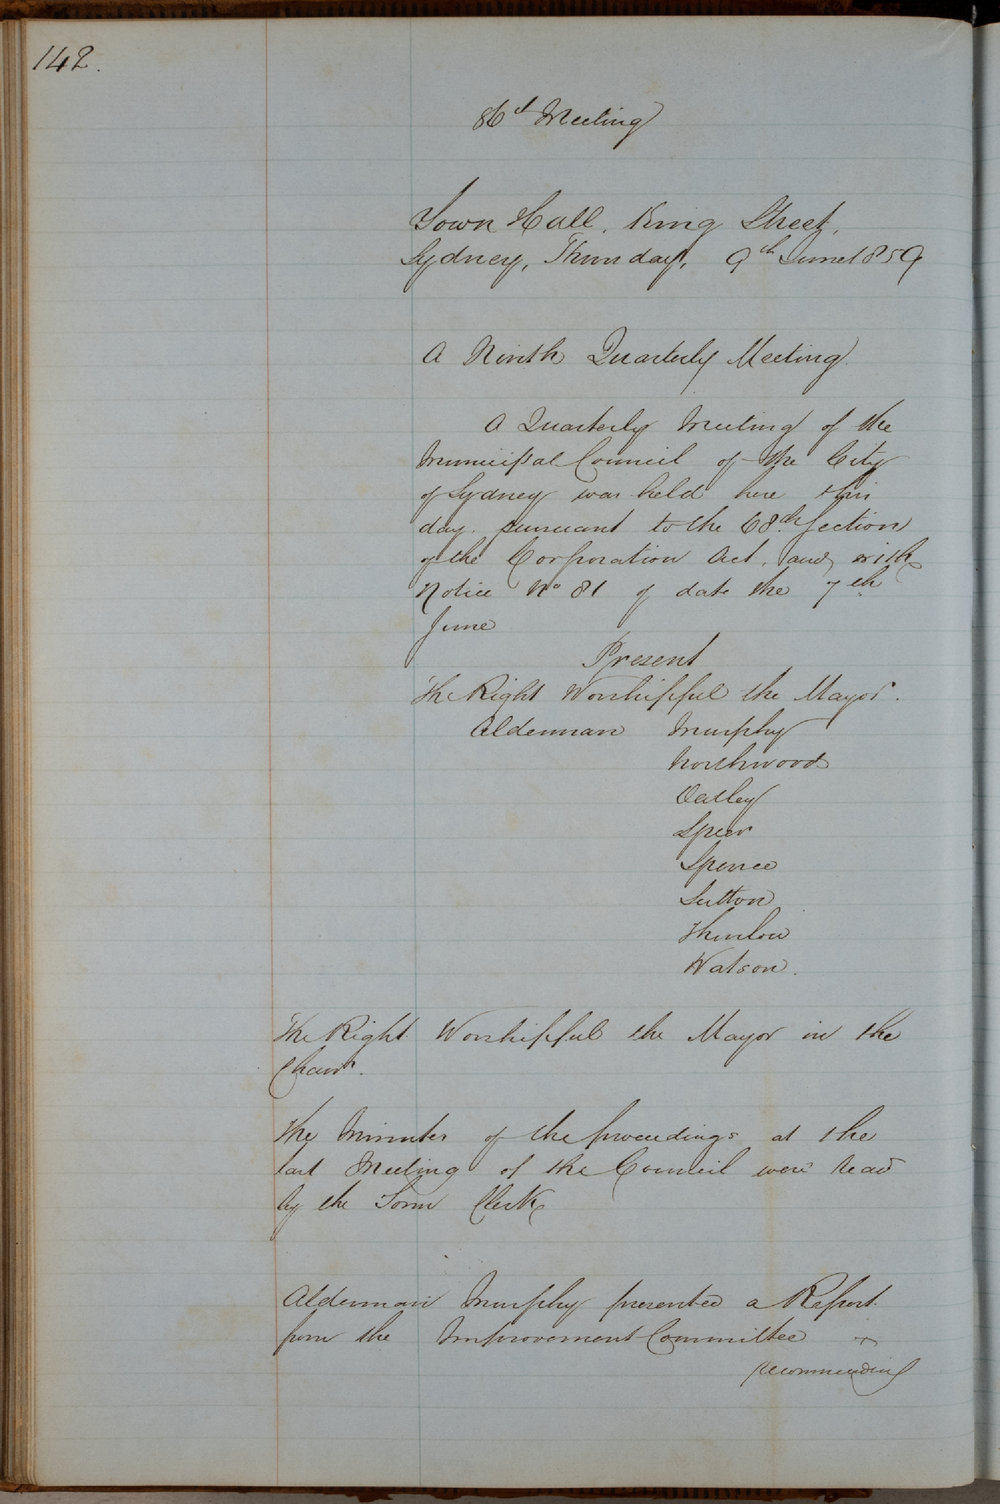 142.
86th Meeting
Town Hall, King Street,
Sydney, Thursday, 9th June 1859
A Ninth Quarterly Meeting.
A Quarterly Meeting of the
Municipal Council of the City
of Sydney was held here this
day pursuant to the 68th Section
of the Corporation Act, and with
Notice No 81 of date the 7th
June
Present
The Right Worshipful the Mayor.
Alderman Murphy
Northwood
Oatley
Speer
Spence
Sutton
Thurlow
Watson.
The Right Worshipful the Mayor in the
Chair.
The Minutes of the proceedings at the
last Meeting of the Council were read
by the Town Clerk
Alderman Murphy presented a Report
from the Improvement Committee
recommending